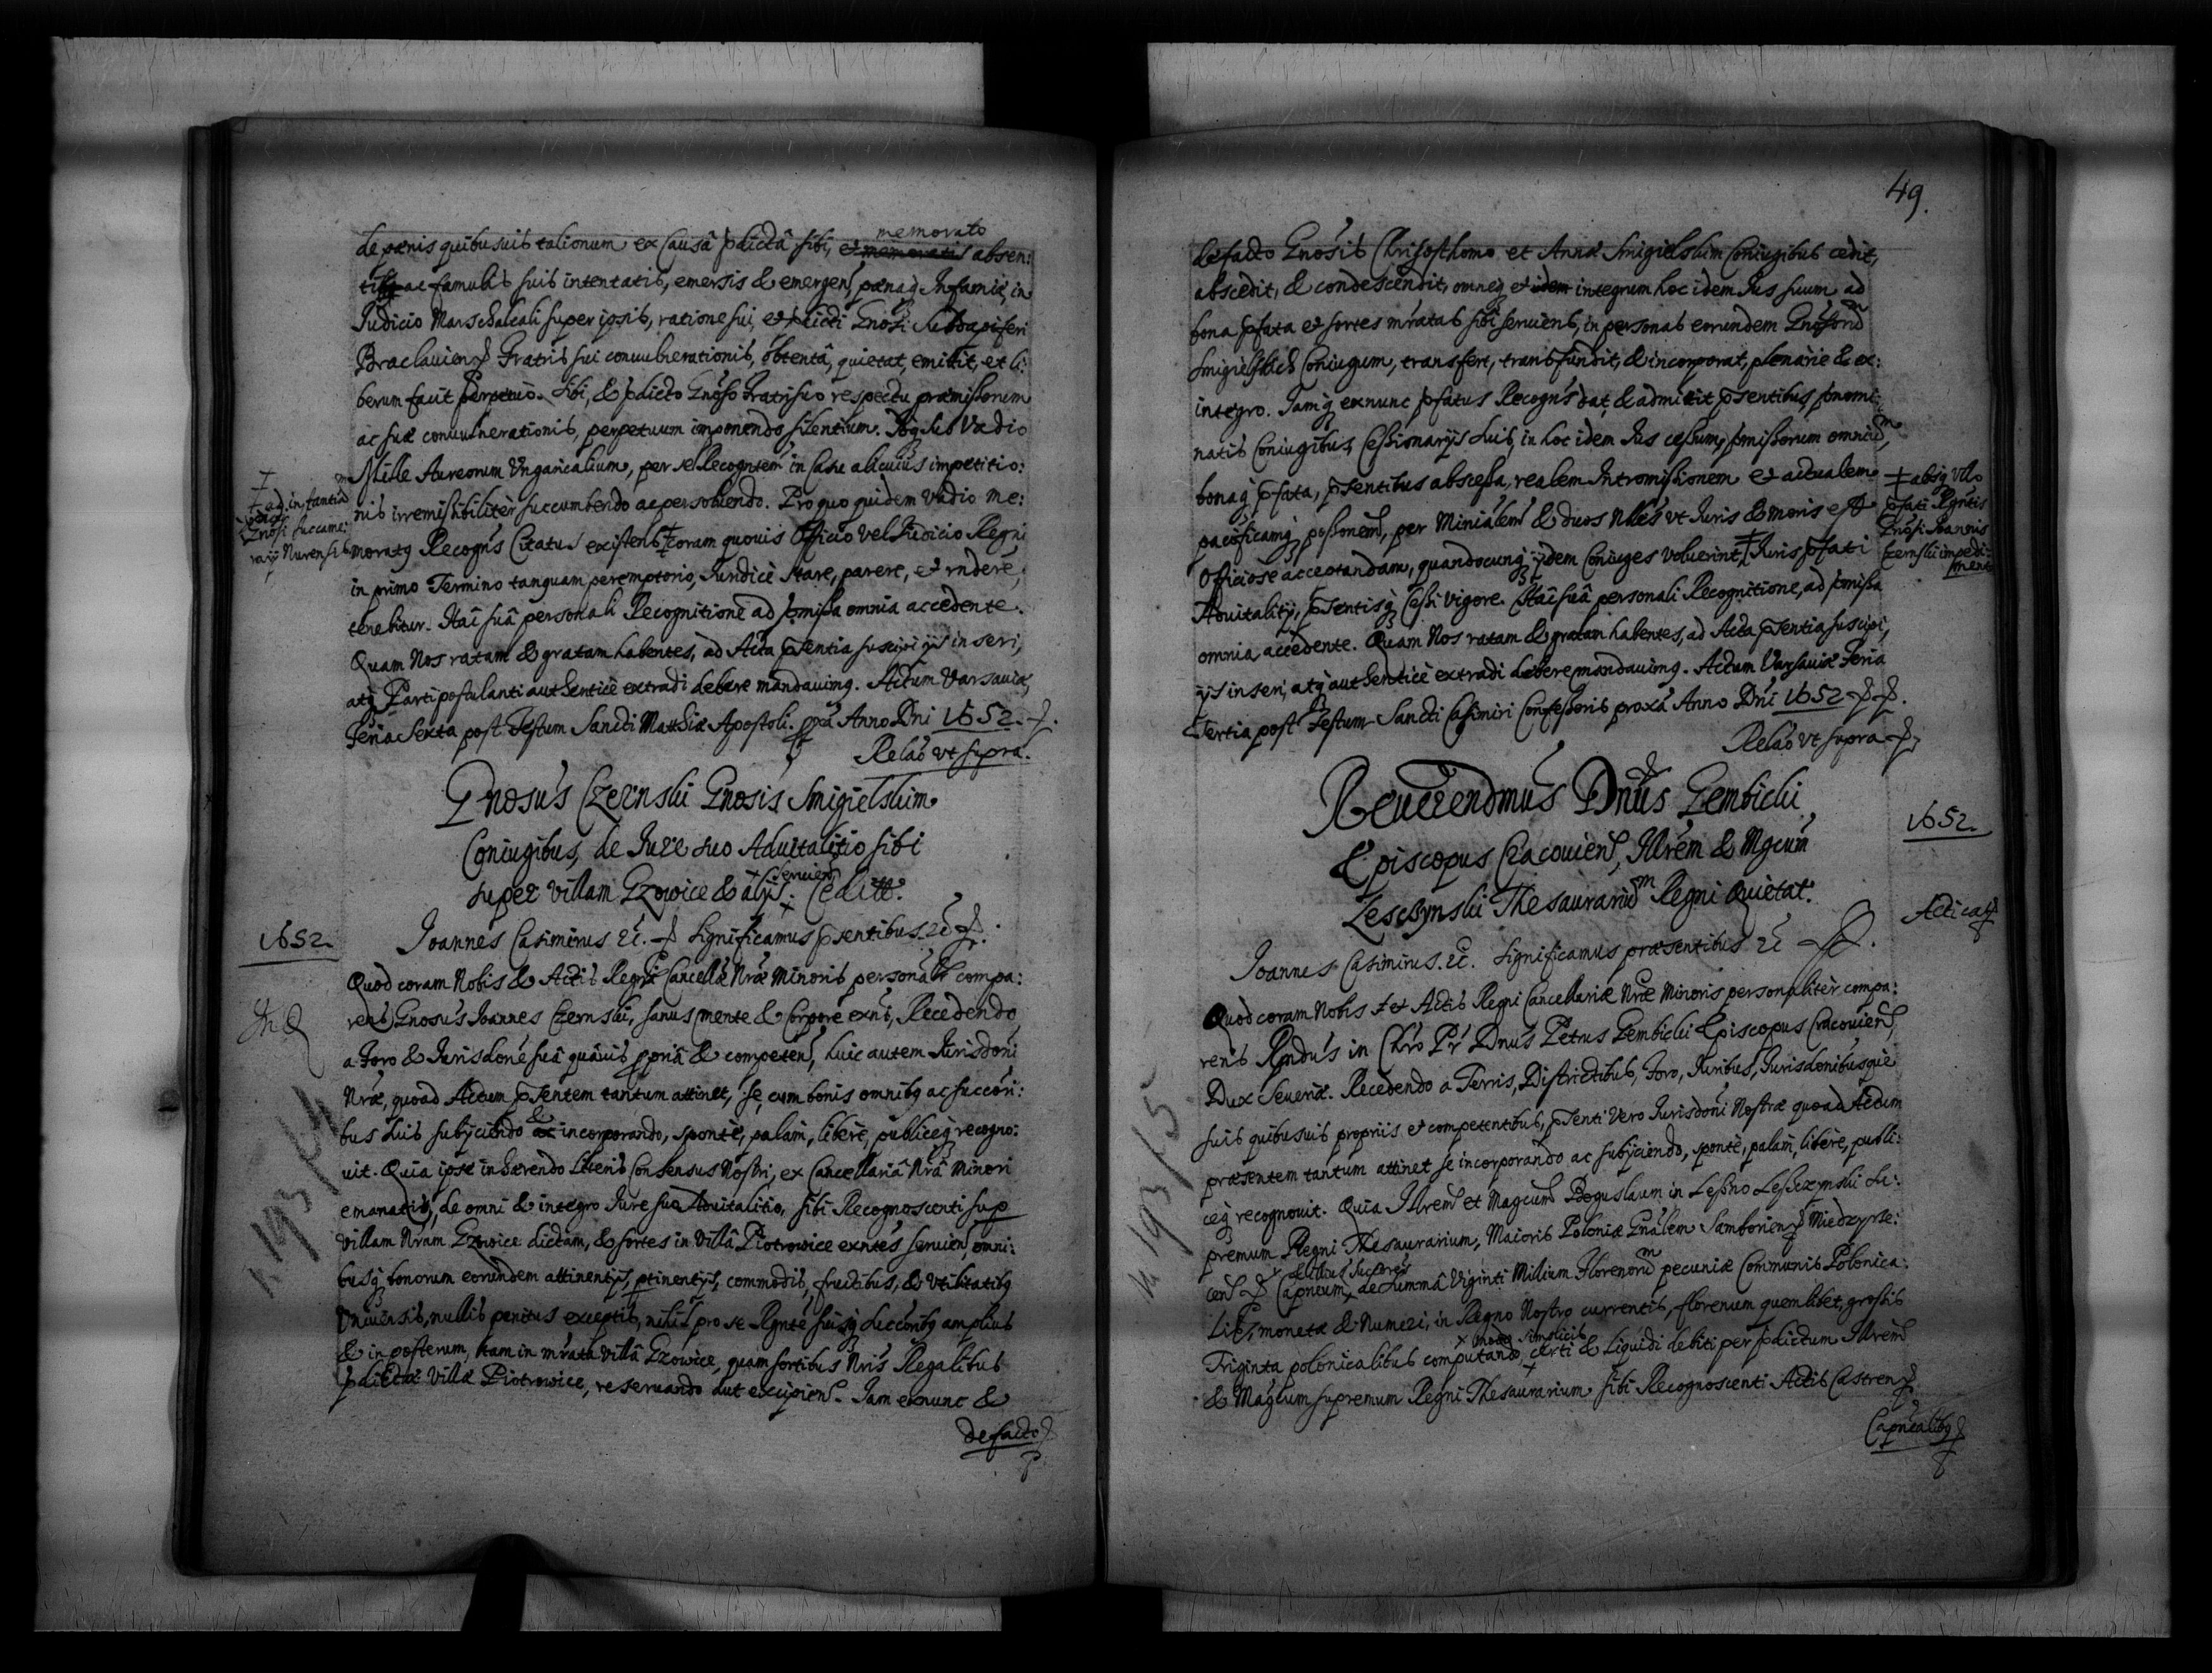 de pœnis quibusuis talionum ex Causâ pdictâ sibi, et memoratis absen:
memorato
tibq ac famulis suis intentatis, emersis & emergen, pœnaq Infamiæ, in
Iudicio Marschalcali super ipsis, ratione sui, et pdicti Gnosi Subdapiferi
Braclauien Fratris sui conuulnerationis, obtentâ, quietat, emittit, et li:
berum facit perpetuo. Sibi, & pdicto Gnoso Fratri suo respectu præmissorum
ac suæ conuulnerationis, perpetuum imponendo silentium. Idq sub Vadio
Mille Aureorum Vngaricalium, per se Recognsem in Casu alicuius impetitio:
nis irremissibiliter succumbendo ac persoluendo. Pro quo quidem Vadio me:
moratq Recogns Citatus existens ‡ coram quouis Officio vel Iudicio Regni
‡ ad instantiam
Gnosi Succame:
rarij Nurensis
in primo Termino tanquam peremptorio, Iuridicè stare, parere, et rndere,
tenebitur. Itaî suâ personali Recognitione ad pmissa omnia accedente.
Quam Nos ratam & gratam habentes, ad Acta psentia suscipi ijs inseri,
atq Parti postulanti authenticè extradi debere mandauimq. Actum Varsauiæ,
Feria Sexta post Festum Sancti Matthiæ Apostoli pxâ Anno Dni 1652.
Relaô vt supra.
Gnosus Czernski Gnosis Smigielskim
Coniugibus, de Iure suo Aduitalitio sibi
super Villam Gzowice & alijs × seruien Cedit.
1652.
Ioannes Casimirus &c. Significamus psentibus &c
Quod coram Nobis & Actis Regni Cancellæ Nræ Minoris personalr compa:
rens Gnosus Ioannes Czernski, sanus mente & Corpore exns, Recedendo
a Foro & Iurisdone suâ quâuis ppriâ & competen, huic autem Iurisdoni
Nræ, quoad Actum psentem tantum attinet, se, cum bonis omnibq ac succori:
bus suis subijciendo & incorporando, spontè, palam, liberè, publiceq recogno:
uit. Quia ipse inhærendo Literis Consensus Nostri, ex Cancellariâ Nrâ Minori
emanatis, de omni & integro Iure suo Aduitalitio, sibi Recognoscenti sup
Villam Nram Gzowice dictam, & sortes in Villâ Piotrowice exntes seruien, omni:
busq bonorum eorundem attinentijs, ptinentijs, commodis, fructibus, & vtilitatibq
Vniuersis, nullis penitus exceptis, nihil pro se Rgnte suisq succoribq amplius
& in posterum, tam in mrata Villâ Gzowice, quam sortibus Nris Regalibus
pdictæ Villæ Piotrowice, reseruando aut excipien. Iam exnunc &
defacto
49.
defacto Gnosis Chrisosthomo et Annæ Smigielskim Coniugibus cedit,
abscedit, & condescendit, omneq et idem integrum hoc idem Ius suum ad
bona pfata et sortes mratas sibi seruiens, in personas eorundem Gnosorum
Smigielskich Coniugum, transfert, transfundit, & incorporat, plenarie & ex:
integro. Iamq exnunc pfatus Recogns dat, & admittit psentibus, pnomi:
natis Coniugibus, Cessionarijs suis, in hoc idem Ius cessum, pmissorum omnium,
bonaq pfata, psentibus abscessa, realem Intromissionem et actualem
pacificamq possonem, per Minialem & duos Nbles vt Iuris & moris est
Officiose acceptandam, quandocunq ijdem Coniuges voluerint, ‡ Iuris pfati
‡ absq vllo
pfati Rgntis
Gnosi Ioannis
Czernski impedi:
mento
Aduitalitij, psentisq Cessi vigore. Itaî suâ personali Recognitione, ad pmissa
omnia accedente. Quam Nos ratam & gratam habentes, ad Acta psentia suscipi,
ijs inseri, atq authenticè extradi debere mandauimq. Actum Varsauiæ Feria
Tertia post Festum Sancti Casimiri Confessoris proxâ Anno Dni 1652
Relaô vt supra
Reuerendmus Dnus Gembicki
Episcopus Cracouien, Illrem & Mgcum
Leszczynski Thesaurarium Regni Quietat.
1652.
Ioannes Casimirus &c. Significamus præsentibus &c
Quod coram Nobis et Actis Regni Cancellariæ Nræ Minoris personaliter compa:
rens Rndus in Chro Pr Dnus Petrus Gembicki Episcopus Cracouien,
Dux Seueriæ. Recedendo a Terris, Districtibus, Foro, Iuribus, Iurisdonibusque
suis quibusuis propriis et competentibus, psenti Vero Iurisdoni Nostræ quoad Actum
præsentem tantum attinet se incorporando ac subijciendo, spontè, palam, liberè, publi:
ceq recognouit. Quia Illrem et Magcum Boguslaum in Lessno Lesczynski Su:
premum Regni Thesaurarium, Maioris Poloniæ Gnalem Samborien Miedzyrze:
cen Capneum, de Summâ Viginti Millium Florenorum pecuniæ Communis Polonica:
lis, monetæ & Numeri, in Regno Nostro currentis, florenum quemlibet, grossis
Triginta polonicalibus computando, certi & liquidi debiti per pdictum Illrem
& Magcum supremum Regni Thesaurarium sibi Recognoscenti Actis Castren
Capnealibq